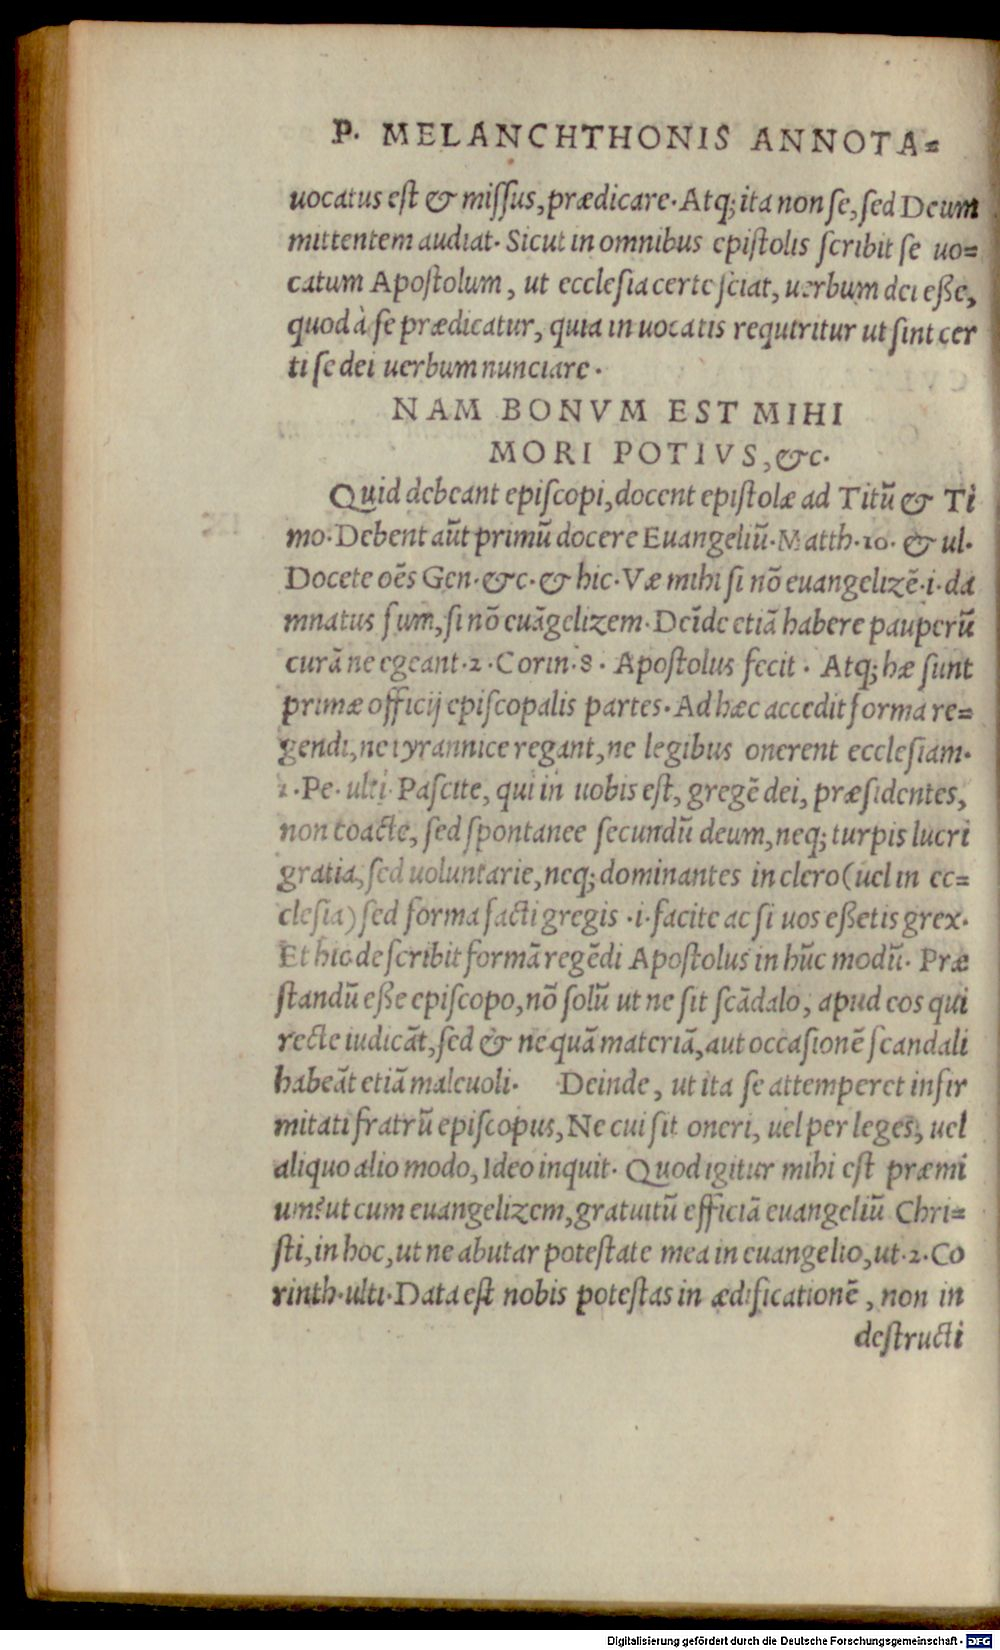 P. MELANCHTHONIS ANNOTA=
uocatus est & missus, prædicare. Atq; ita non se, sed Deum
mittentem audiat. Sicut in omnibus epistolis scribit se uo=
catum Apostolum, ut ecclesia certe sciat, uerbum dei eße,
quod à se prædicatur, quia in uocatis requiritur ut sint cer
ti se dei uerbum nunciare.
NAM BONVM EST MIHI
MORI POTIVS, &c.
Quid debeant episcopi, docent epistolæ ad Titũ & Ti
mo. Debent aũt primũ docere Euangeliũ. Matth. 10. & ul.
Docete oẽs Gen. &c. & hic. Væ mihi si nõ euangelizẽ .i. da
mnatus sum, si nõ euãgelizem. Deĩde etiã habere pauperũ
curã ne egeant. 2. Corin. 8. Apostolus fecit. Atq; hæ sunt
primæ officij episcopalis partes. Ad hæc accedit forma re=
gendi, ne tyrannice regant, ne legibus onerent ecclesiam.
1. Pe. ulti. Pascite, qui in uobis est, gregẽ dei, præsidentes,
non coacte, sed spontanee secundũ deum, neq; turpis lucri
gratia, sed uoluntarie, neq; dominantes in clero (uel in ec=
clesia) sed forma facti gregis .i. facite ac si uos eßetis grex.
Et hic describit formã regẽdi Apostolus in hũc modũ. Præ
standũ eße episcopo, nõ solũ ut ne sit scãdalo, apud eos qui
recte iudicãt, sed & ne quã materiã, aut occasionẽ scandali
habeãt etiã maleuoli. Deinde, ut ita se attemperet infir
mitati fratrũ episcopus, Ne cui sit oneri, uel per leges, uel
aliquo alio modo, Ideo inquit. Quod igitur mihi est præmi
um? ut cum euangelizem, gratuitũ efficiã euangeliũ Chri=
sti, in hoc, ut ne abutar potestate mea in euangelio, ut. 2. Co
rinth. ulti. Data est nobis potestas in ædificationẽ, non in
destructi
Digitalisierung gefördert durch die Deutsche Forschungsgemeinschaft - DFG